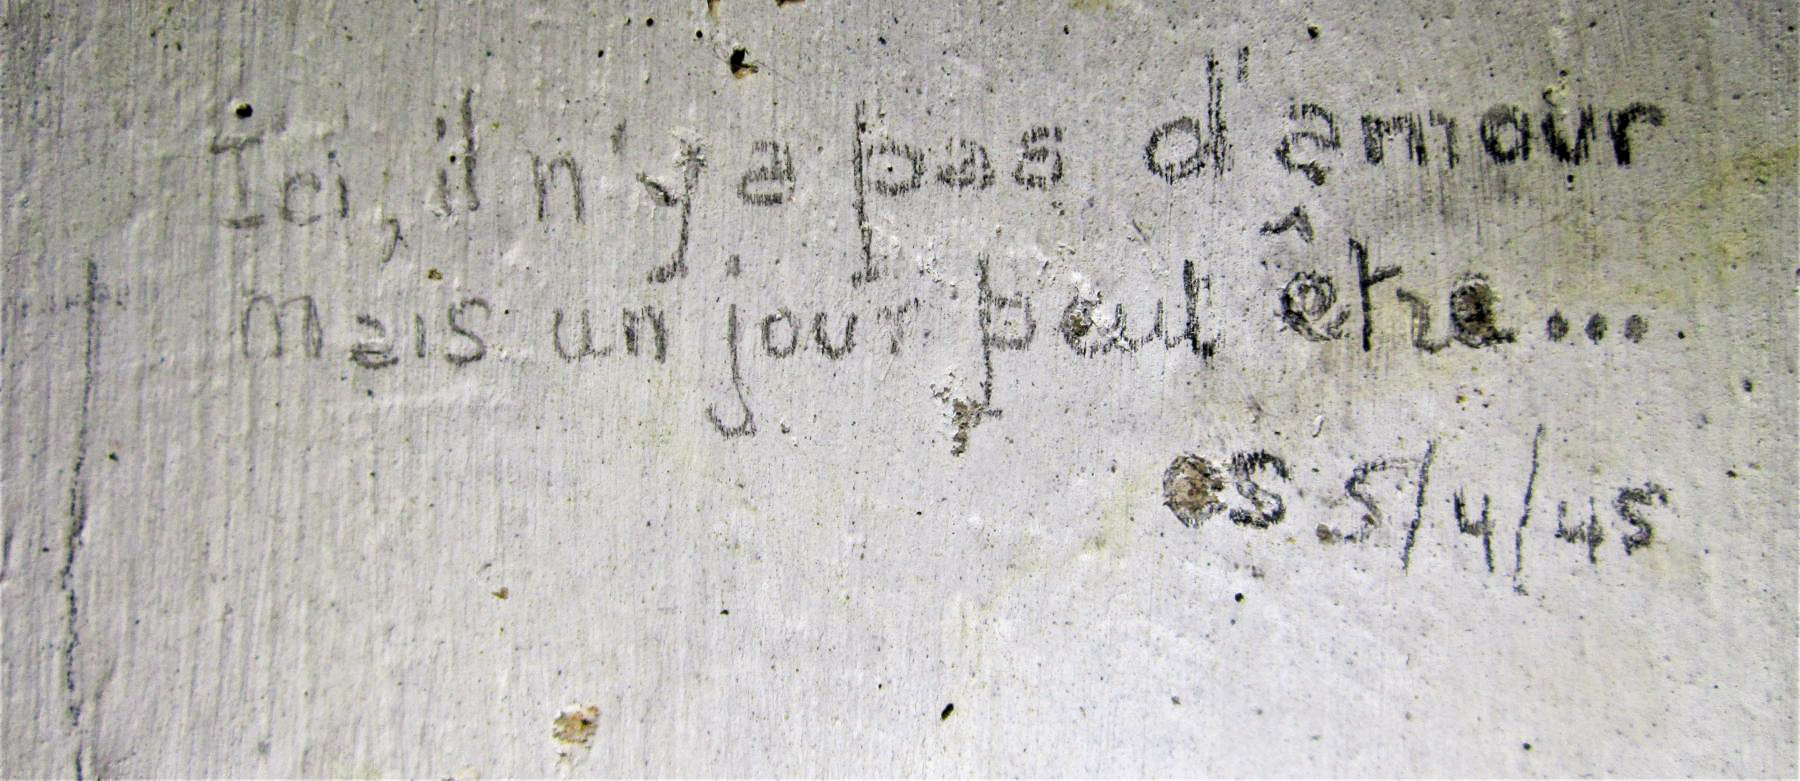 Ici, il n'y a pas d'amour
Mais un jour peut être...
CS 5/4/45